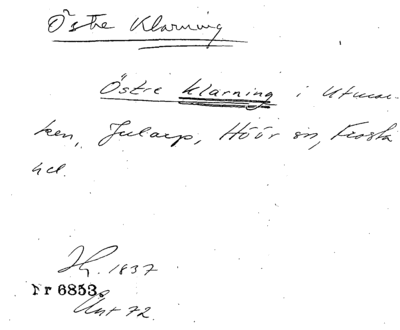 Östre Klarning
Östre Klarning i Utmar-
ken, Jularp, Höör sn, Frosta
hd.
1837
Nr 6853.
72.